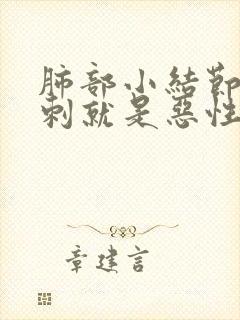 肺部小結節
刺就是惡性
章建言